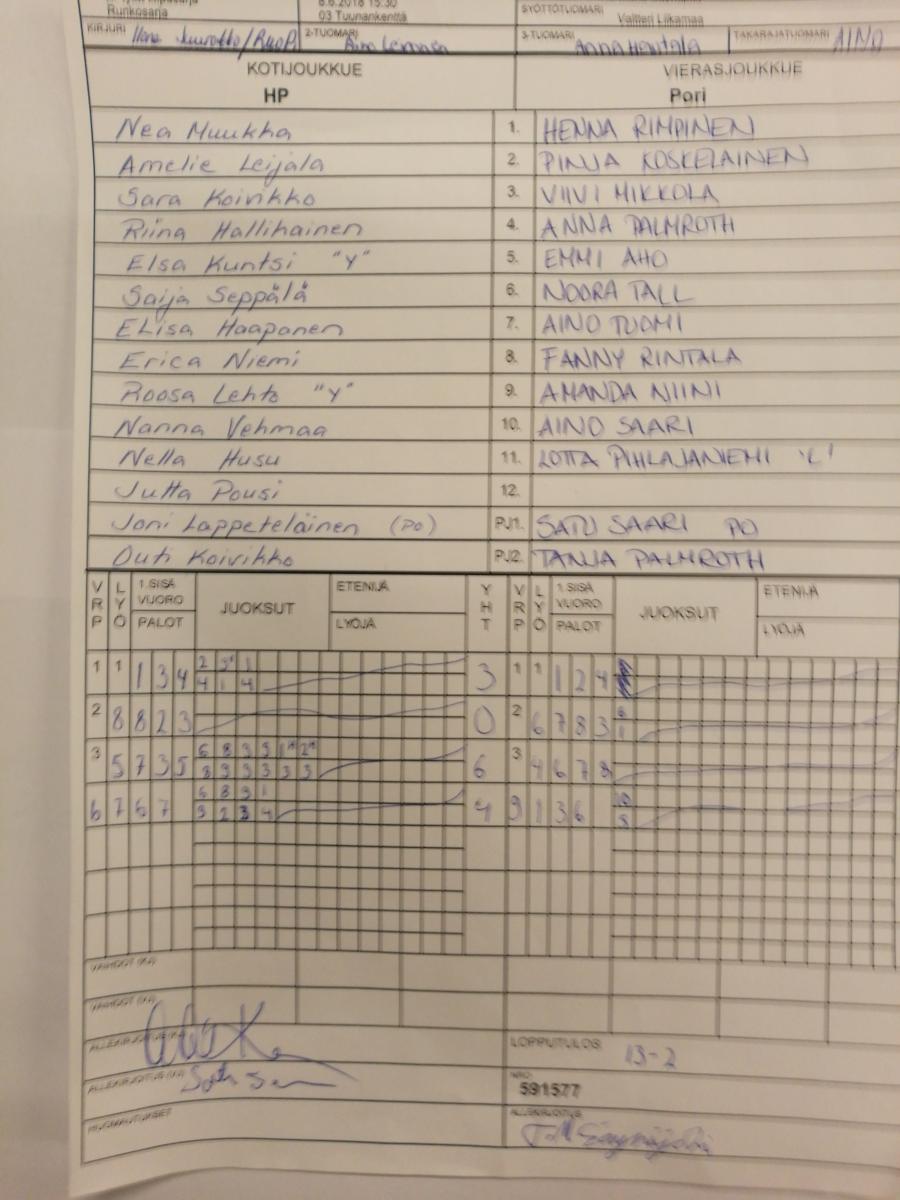 Runkosarja
8.6.2018 15:30
03 Tuunankenttä
SYÖTTÖTUOMARI
Valtteri Liikamaa
KIRJURI
2-TUOMARI
3-TUOMARI Anna Hautala
TAKARAJATUOMARI AINO
KOTIJOUKKUE VIERASJOUKKUE
HP Pori
Nea Muukka 1. HENNA RIMPINEN
Amelie Leijala 2. PINJA KOSKELAINEN
Sara Koivikko 3. VIIVI MIKKOLA
Riina Hallihainen 4. ANNA PALMROTH
Elsa Kuntsi "Y" 5. EMMI AHO
Saija Seppälä 6. NOORA TALL
Elisa Haapanen 7. AINO TUOMI
Erica Niemi 8. FANNY RINTALA
Roosa Lehto "Y" 9. AMANDA NIINI
Nanna Vehmaa 10. AINO SAARI
Nella Husu 11. LOTTA PIHLAJANIEMI 'L'
Jutta Pousi 12.
Joni Lappeteläinen (PO) PJ1. SATU SAARI PO
Outi Koivikko PJ2. TANJA PALMROTH
VRP LYÖ 1.SISÄ VUORO PALOT JUOKSUT ETENIJÄ LYÖJÄ YHT VRP LYÖ 1.SISÄ VUORO PALOT JUOKSUT ETENIJÄ LYÖJÄ
1 1 1 3 4 3 1 1 1 2 4
2 8 8 2 3 0 2 6 7 8 3
3 5 7 3 5 6 3 4 6 7 8
6 7 6 7 4 9 1 3 6
VAIHDOT (KJ)
VAIHDOT (VJ)
ALLEKIRJOITUS (KJ)
LOPPUTULOS 13-2
ALLEKIRJOITUS (VJ)
NRO
591577
HUOMAUTUKSET
ALLEKIRJOITUS